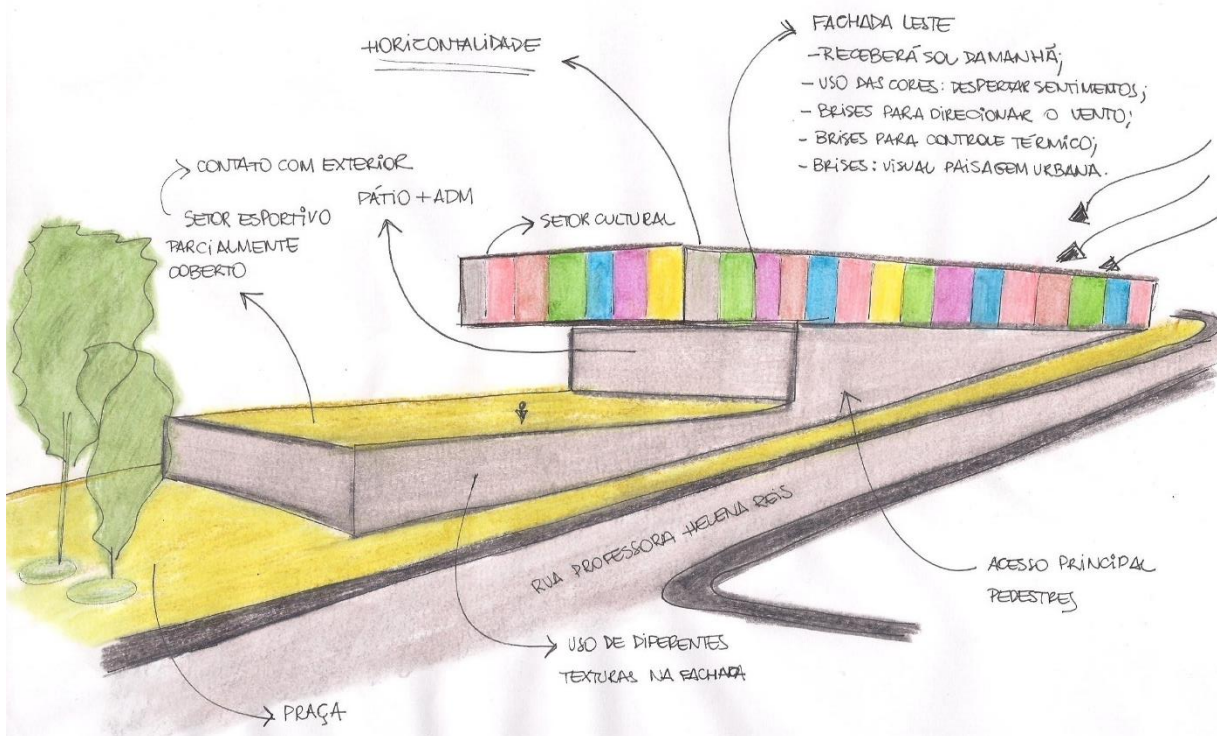 HORIZONTALIDADE
FACHADA LESTE
- RECEBERÁ SOL DA MANHÃ;
- USO DAS CORES: DESPERTAR SENTIMENTOS;
- BRISES PARA DIRECIONAR O VENTO;
- BRISES PARA CONTROLE TÉRMICO;
- BRISES: VISUAL PAISAGEM URBANA.
CONTATO COM EXTERIOR
SETOR ESPORTIVO
PARCIALMENTE
COBERTO
PÁTIO + ADM
SETOR CULTURAL
RUA PROFESSORA HELENA REIS
ACESSO PRINCIPAL
PEDESTRES
USO DE DIFERENTES
TEXTURAS NA FACHADA
PRAÇA